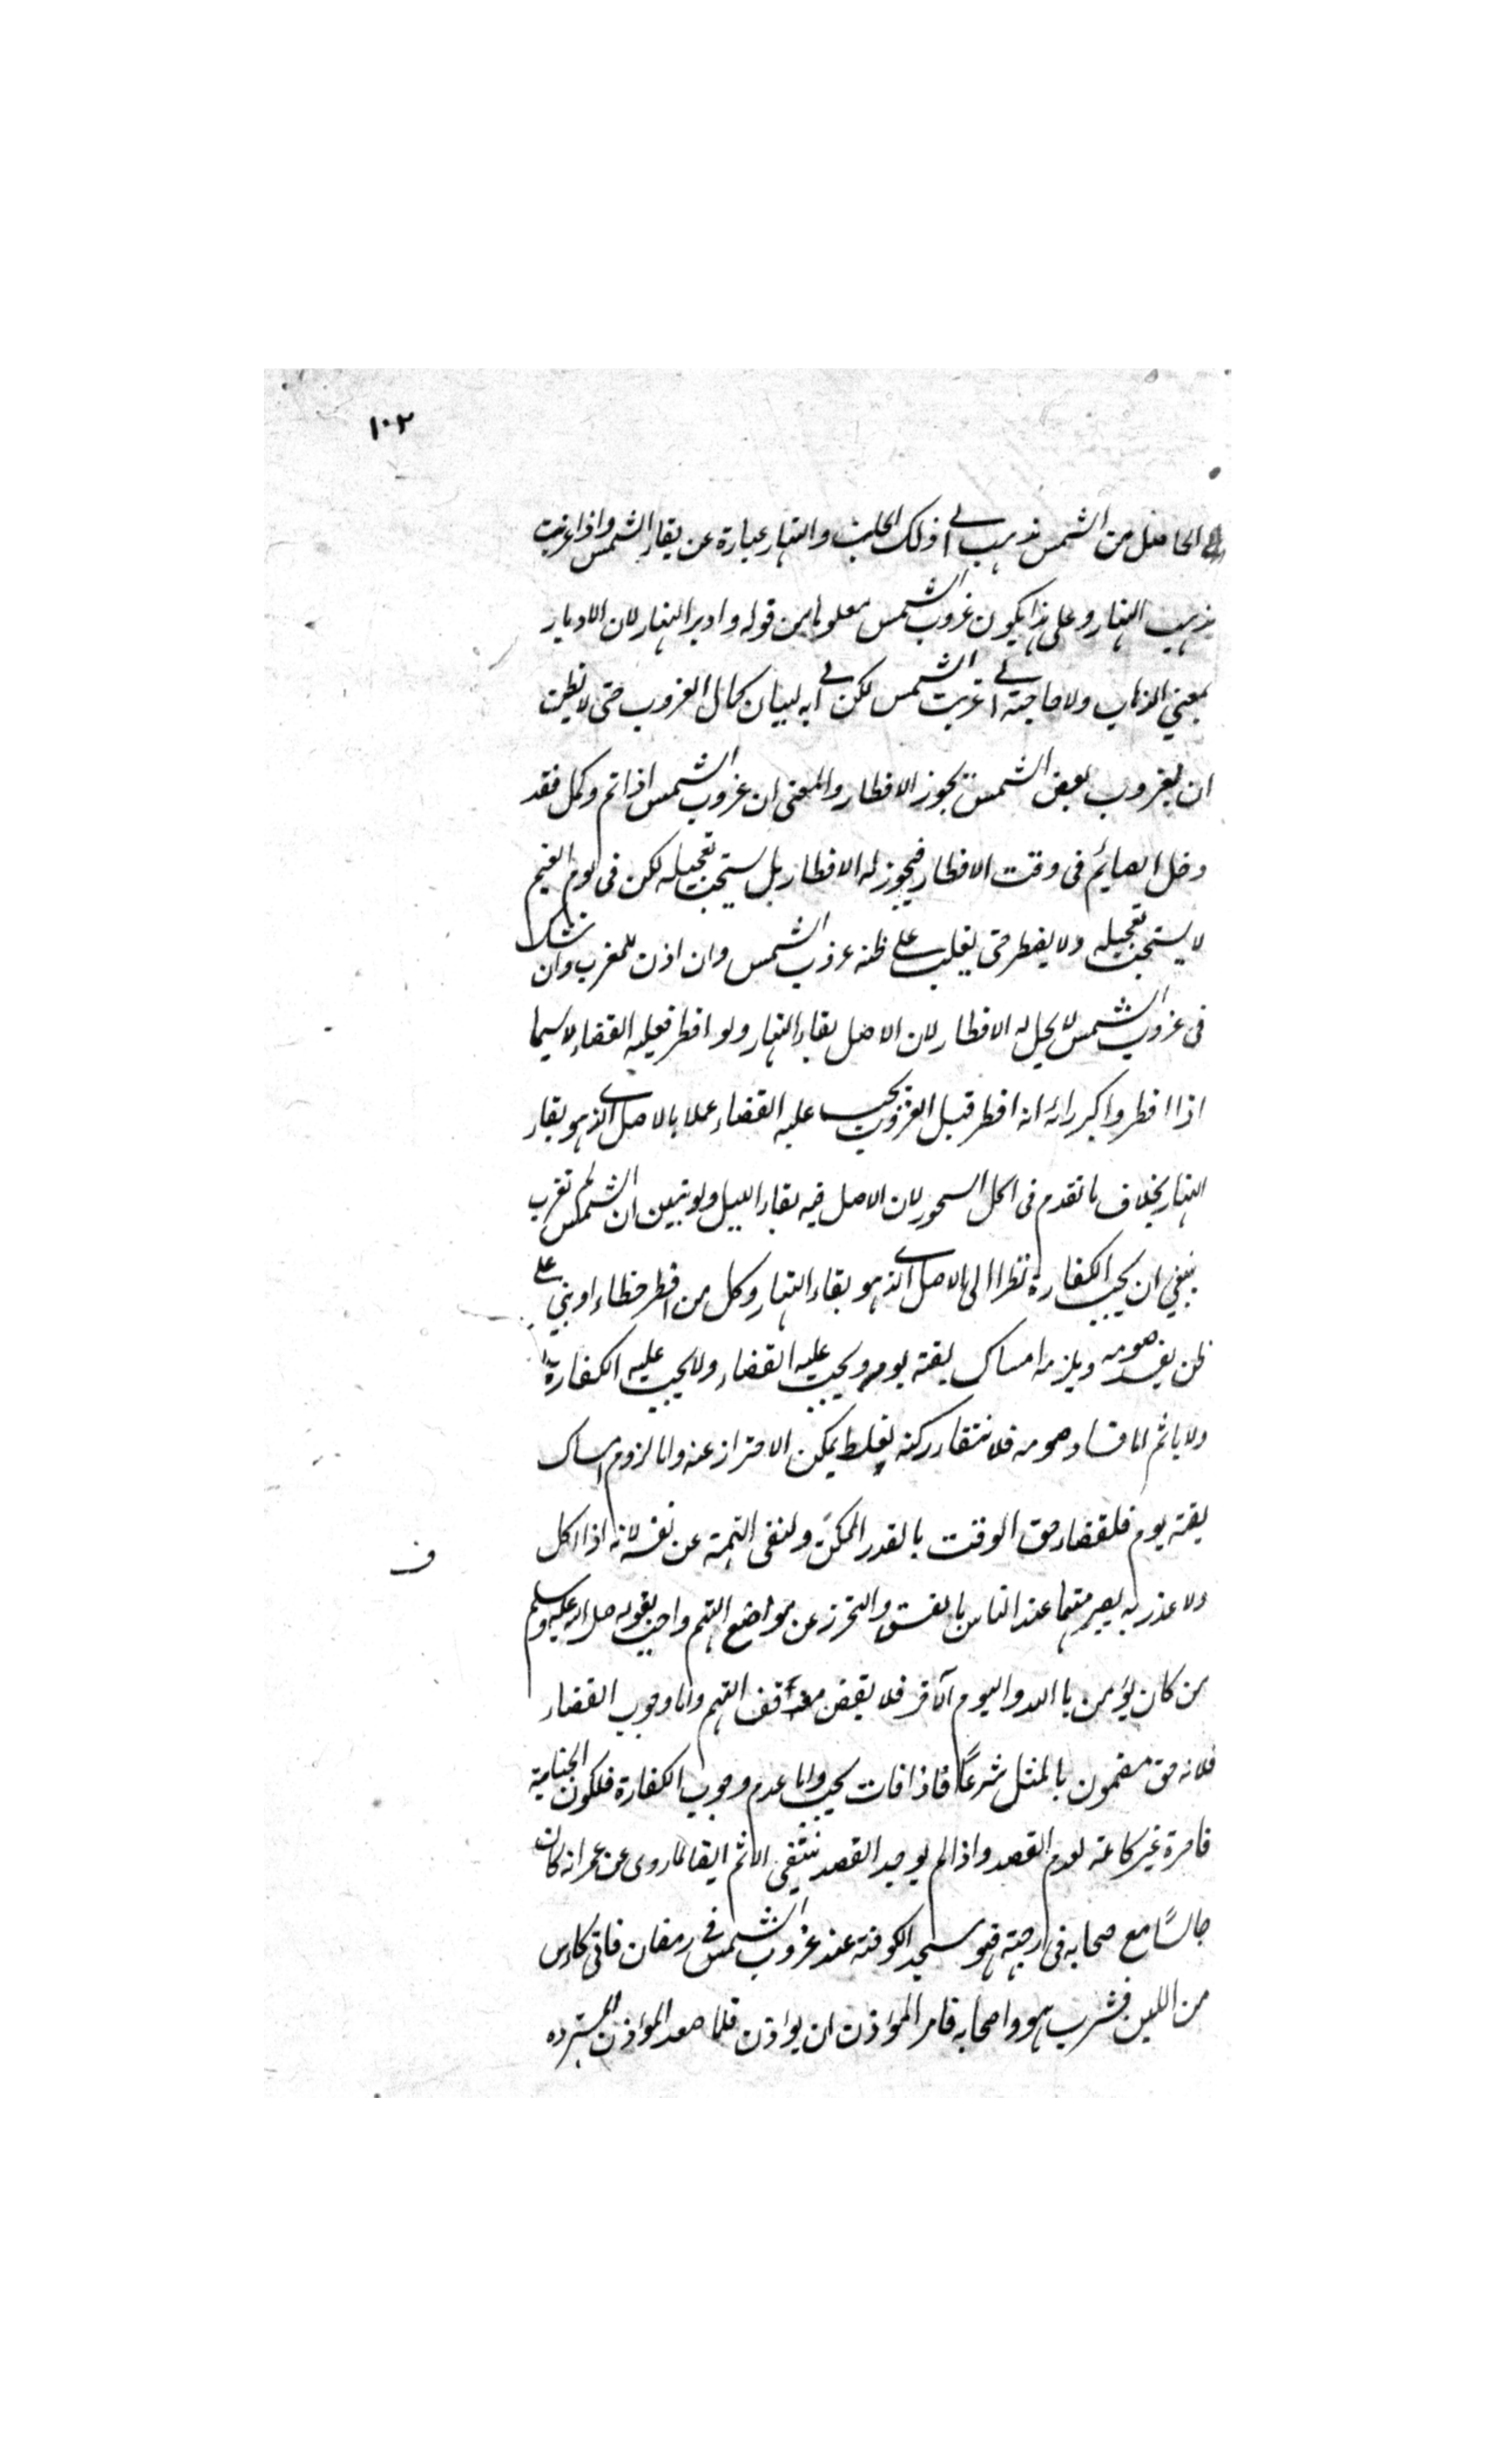 ١٠٢
الحاصل من الشمس يذهب الى ذلك الجانب والنهار عبارة عن بقاء الشمس واذا غربت
يذهب النهار وعلى هذا يكون غروب الشمس معلوما من قوله وادبر النهار لان الادبار
بمعنى الذهاب ولا حاجة الى غربت الشمس لكن اتى به لبيان كمال الغروب حتى لا يظن
ان بغروب بعض الشمس يجوز الافطار والمعنى ان غروب الشمس اذا تم وكمل فقد
دخل الصايم فى وقت الافطار فيجوز له الافطار بل يستحب تعجيله لكن فى يوم الغيم
لا يستحب تعجيله ولا يفطر حتى يغلب على ظنه غروب الشمس وان اذن للمغرب وان شك
فى غروب الشمس لا يحل له الافطار لان الاصل بقاء النهار ولو افطر فعليه القضاء لا سيما
اذا افطر واكبر رائه انه افطر قبل الغروب يجب عليه القضاء عملا بالاصل الذى هو بقاء
النهار بخلاف ما تقدم فى اكل السحور لان الاصل فيه بقاء الليل ولو تبين ان الشمس لم تغرب
ينبغي ان يجب الكفارة نظرا الى الاصل الذى هو بقاء النهار وكل من افطر خطاء او بنى على
ظن يفسد صومه ويلزمه امساك بقية يومه ويجب عليه القضاء ولا يجب عليه الكفارة
ولا ياثم اما فساد صومه فلانتقاء ركنه بغلط يمكن الاحتراز عنه واما لزوم امساك
بقية يوم فلقضاء حق الوقت بالقدر الممكن ولنفى التهمة عن نفسه لانه اذا اكل
ف
ولا عذر به يصير متهما عند الناس بالفسق والتحرز عن مواضع التهم واجب بقوله صلى الله عليه وسلم
من كان يؤمن با الله واليوم الآخر فلا يقفن مواقف التهم واما وجوب القضاء
فلانه حق مضمون بالمثل شرعًا فاذا فات يجب واما عدم وجوب الكفارة فلكون الجناية
قاصرة غير كاملة لعدم القصد واذا لم يوجد القصد ينتفى الاثم ايضا لما روى عن عمر انه كان
جالسًا مع صحابه فى رحبة مسجد الكوفة عند غروب الشمس فى رمضان فاتى كاس
من اللبن فشرب هو واصحابه فامر المواذن ان يواذن فلما صعد المواذن